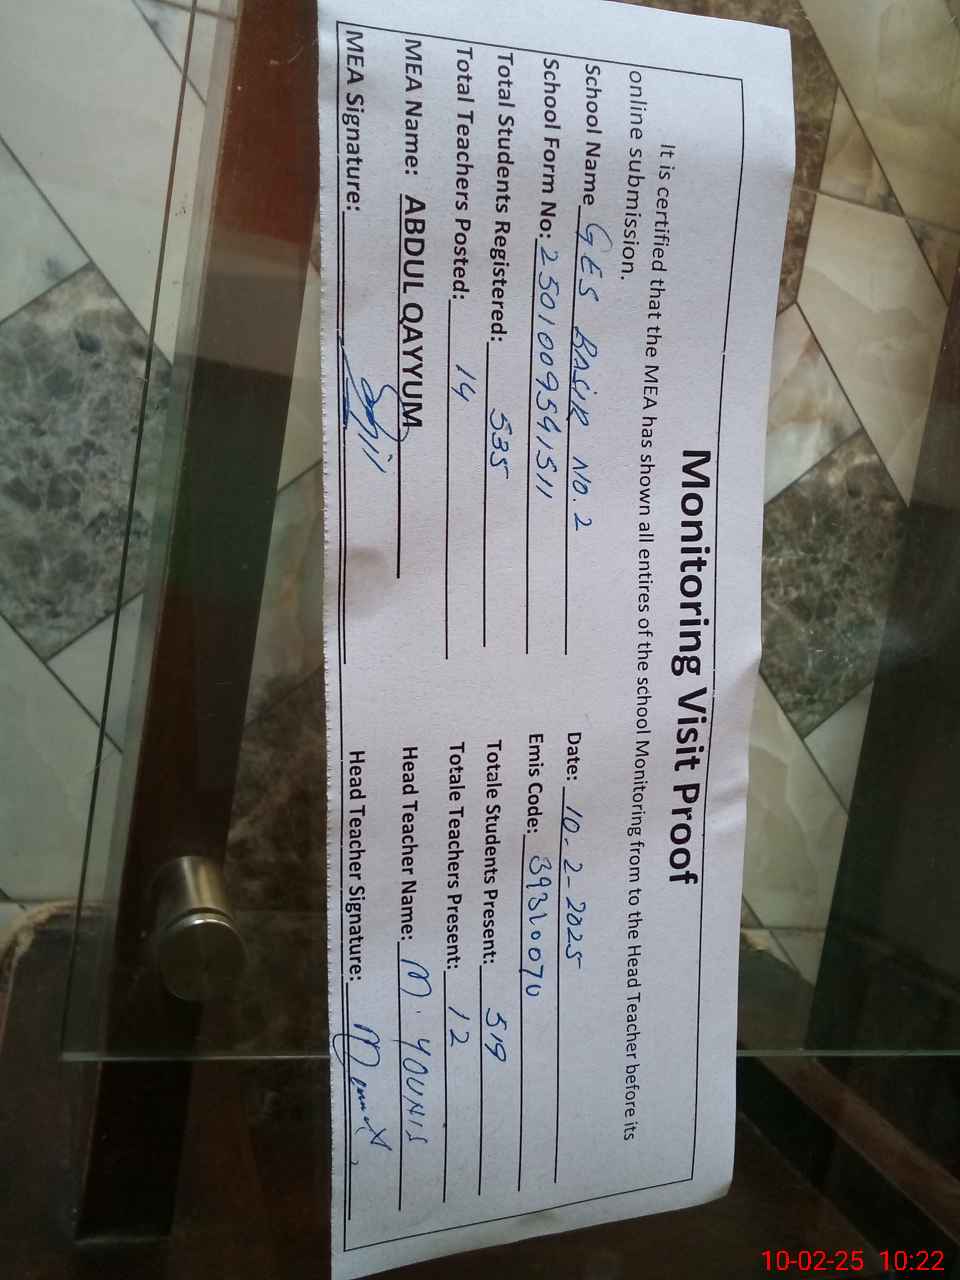 Monitoring Visit Proof
It is certified that the MEA has shown all entires of the school Monitoring from to the Head Teacher before its
online submission.
School Name GES BASIR NO. 2 Date: 10-2-2025
School Form No: 2501009541511 Emis Code: 39310070
Total Students Registered: 535 Totale Students Present: 519
Total Teachers Posted: 14 Totale Teachers Present: 12
MEA Name: ABDUL QAYYUM Head Teacher Name: M. YOUNIS
MEA Signature: Head Teacher Signature:
10-02-25 10:22